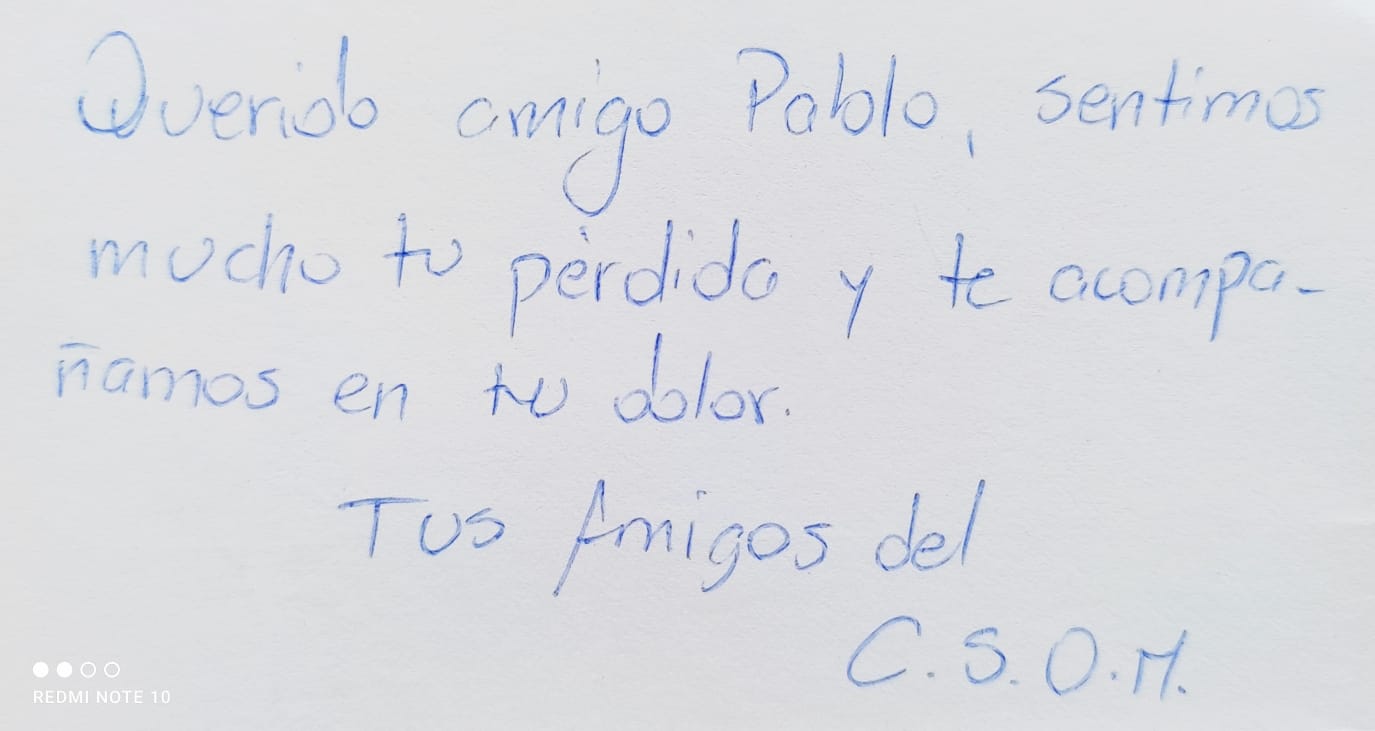 Querido amigo Pablo, sentimos
mucho tu pérdida y te acompa-
ñamos en tu dolor.
Tus Amigos del
C.S.O.M.
REDMI NOTE 10